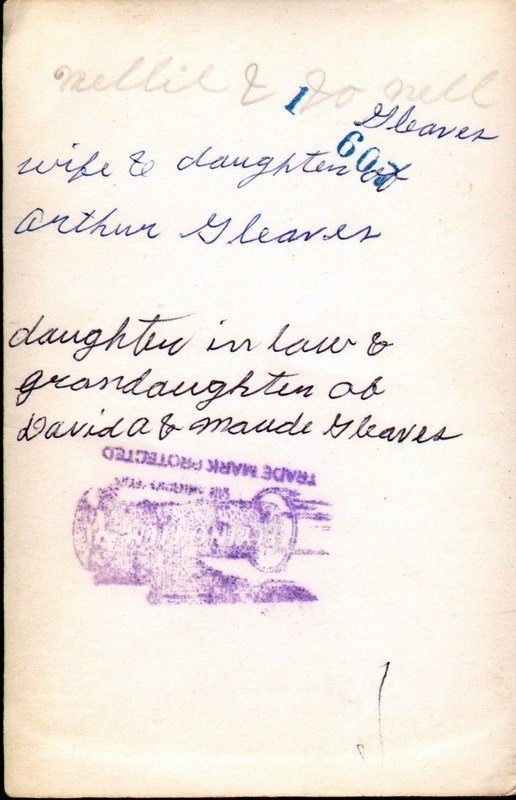 Nellie & Jo Nell
1
Gleaves
607
wife & daughter of
Arthur Gleaves
daughter in law &
grandaughter of
David A & Maude Gleaves
TRADE MARK PROTECTED